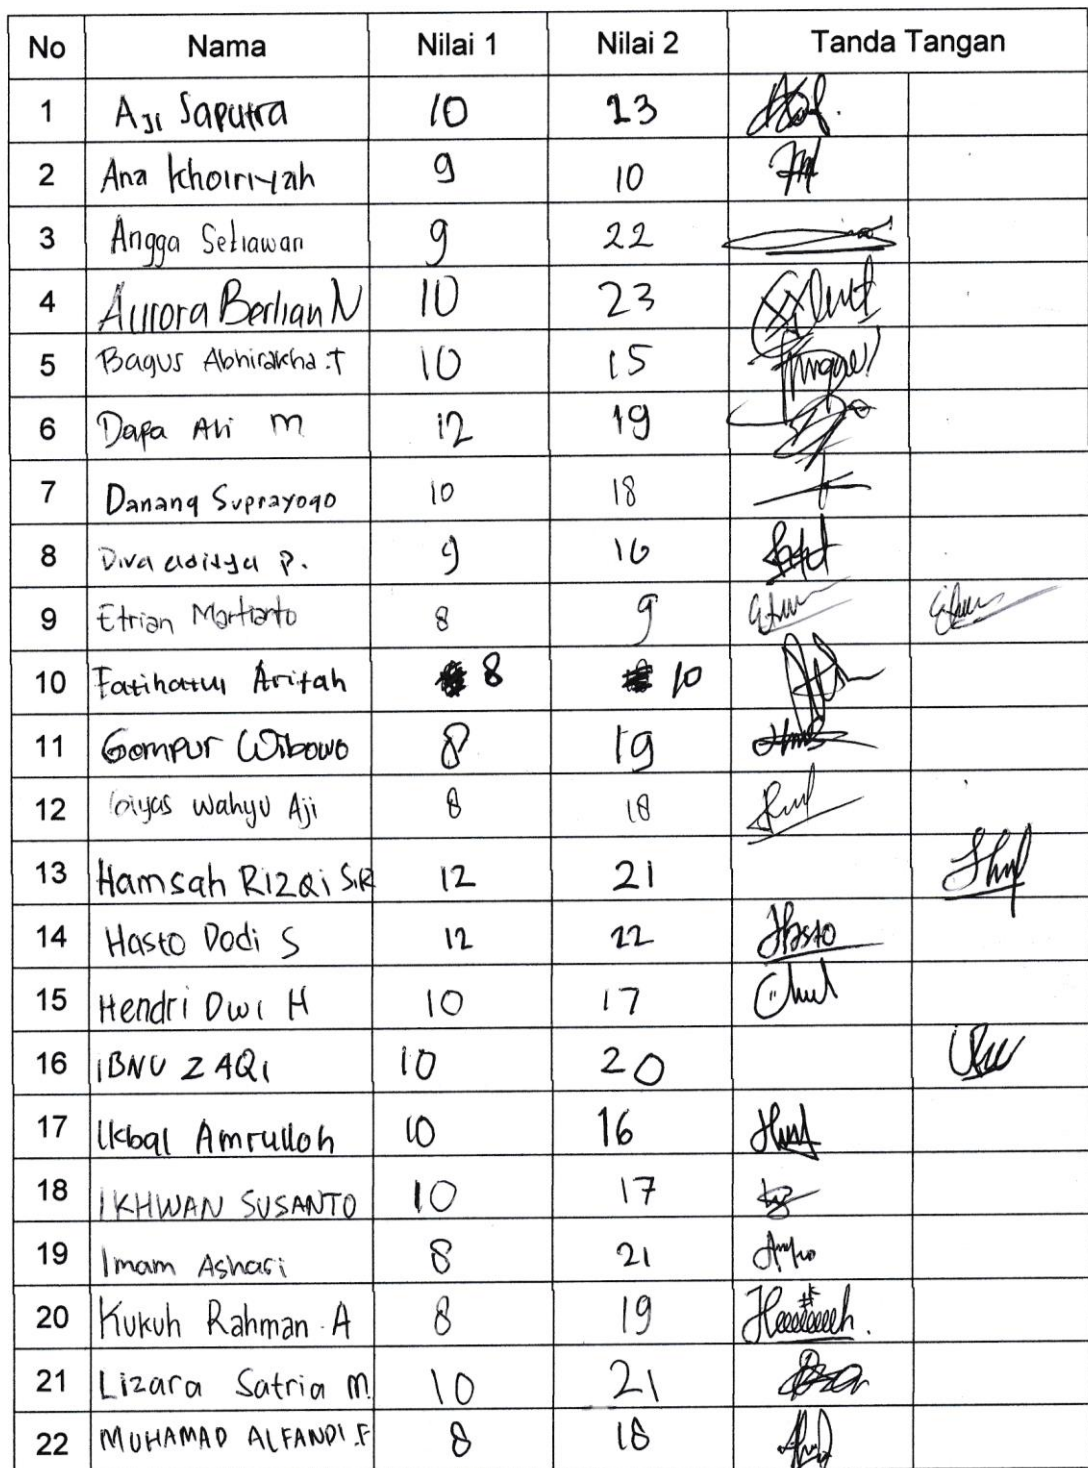 No Nama Nilai 1 Nilai 2 Tanda Tangan
1 Aji Saputra 10 23
2 Ana Khoiriyah 9 10
3 Angga Setiawan 9 22
4 Aurora Berlian N 10 23
5 Bagus Abhirakha.T 10 15
6 Dafa Ali M 12 19
7 Danang Suprayogo 10 18
8 Diva aditya P. 9 16
9 Etrian Martianto 8 9
10 Fatihatul Arifah 8 10
11 Gempur Wibowo 8 19
12 Wahyu Aji 8 18
13 Hamsah RIZQi S.R 12 21
14 Hasto Dodi S 12 22 Hasto
15 Hendri Dwi H 10 17
16 IBNU ZAQI 10 20
17 Ikbal Amrulloh 10 16
18 IKHWAN SUSANTO 10 17
19 Imam Ashari 8 21
20 Kukuh Rahman A 8 19
21 Lizara Satria M 10 21
22 MUHAMAD ALFANDI.F 8 18